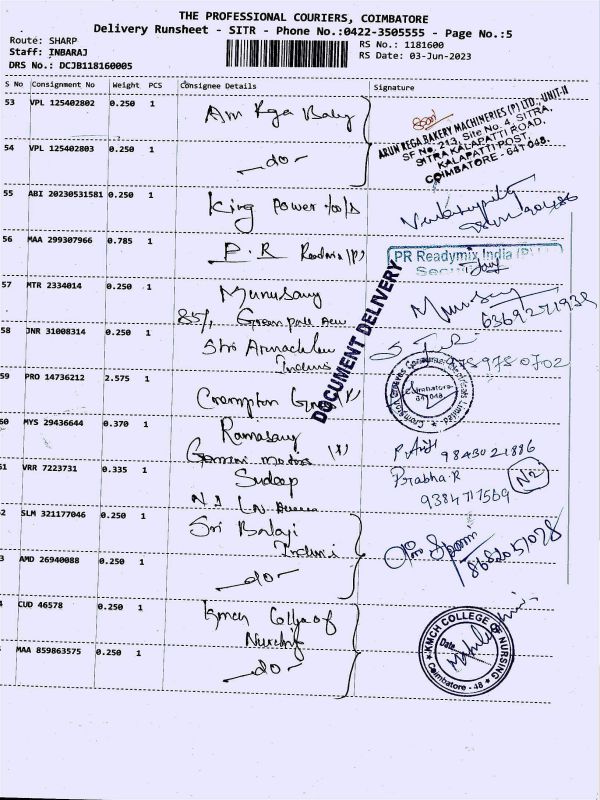 THE PROFESSIONAL COURIERS, COIMBATORE
Delivery Runsheet - SITR - Phone No.:0422-3505555 - Page No.:5
Route: SHARP
Staff: INBARAJ
DRS No.: DCJB118160005
RS No.: 1181600
RS Date: 03-Jun-2023
S No Consignment No Weight PCS Consignee Details Signature
53 VPL 125402802 0.250 1
ARUN REGA BAKERY MACHINERIES (P) LTD., UNIT-II
SF No. 213, Site No. 4, SITRA,
SITRA KALAPATTI ROAD,
KALAPATTI POST,
COIMBATORE - 641 048.
54 VPL 125402803 0.250 1 -do-
55 ABI 20230531581 0.250 1 King Power
56 MAA 299307966 0.785 1 P.R
PR Readymix India (P)
57 MTR 2334014 0.250 1 Munusamy
6369271938
85/,
58 JNR 31008314 0.250 1 Shri
9789780702
DOCUMENT DELIVERY
59 PRO 14736212 2.575 1 Crompton
Coimbatore
641 048
60 MYS 29436644 0.370 1 Ramasamy
9843021886
Gemini motors
61 VRR 7223731 0.335 1 Sudeep
Prabha.R
9384717569
N2
2 SLM 321177046 0.250 1 Sri Balaji
8682057078
3 AMD 26940088 0.250 1 -do-
4 CUD 46578 0.250 1 Kmch College of
Nursing
KMCH COLLEGE OF NURSING
Date
Coimbatore - 48
5 MAA 859863575 0.250 1 -do-